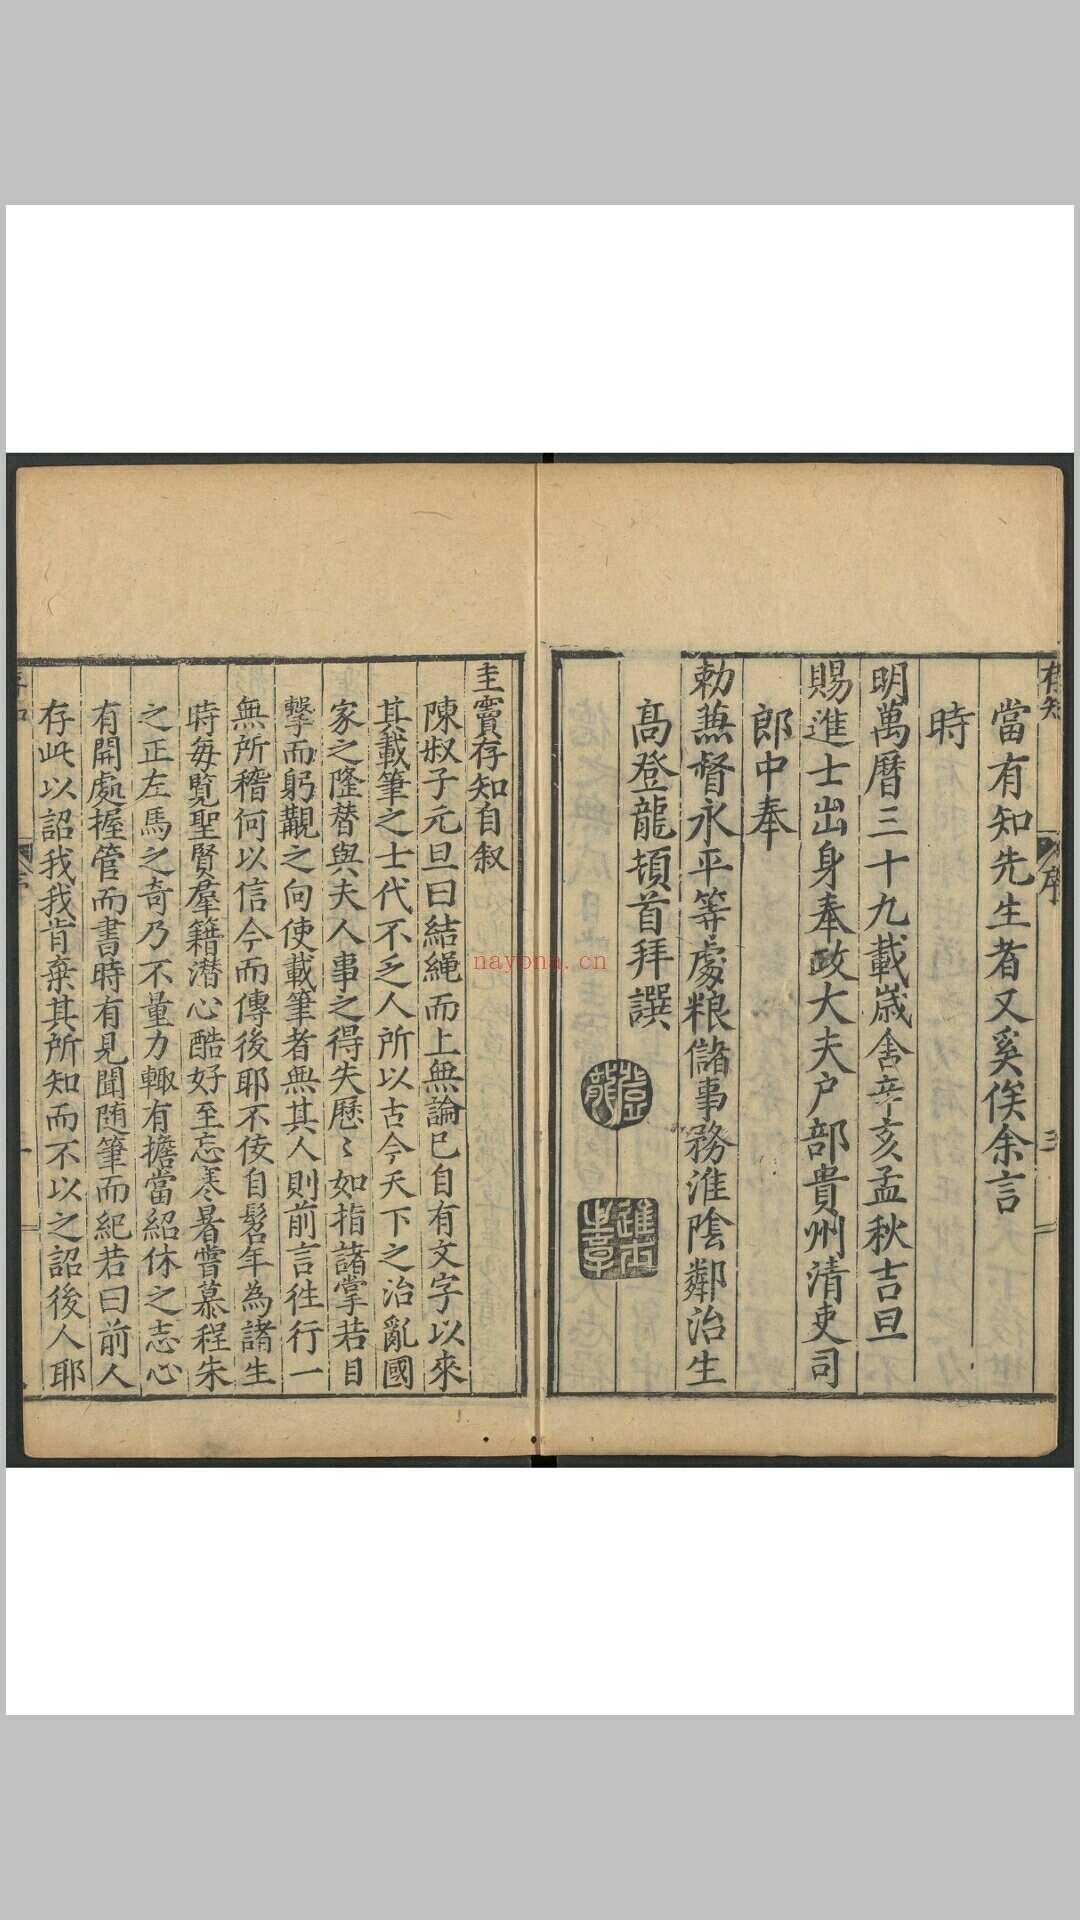 存知
序
當有知先生者又奚俟余言
時
明萬曆三十九載歲舍辛亥孟秋吉旦
賜進士出身奉政大夫户部貴州清吏司
郎中奉
勅兼督永平等處粮儲事務淮陰鄰治生
高登龍頓首拜譔
登龍
進士
圭竇存知自叙
陳叔子元旦曰結繩而上無論已自有文字以來
其載筆之士代不乏人所以古今天下之治亂國
家之隆替與夫人事之得失歷〻如指諸掌若目
擊而躬覯之向使載筆者無其人則前言徃行一
無所稽何以信今而傳後耶不佞自髫年為諸生
時每覽聖賢羣籍潛心酷好至忘寒暑嘗慕程朱
之正左馬之奇乃不量力輙有擔當紹休之志心
有開處握管而書時有見聞随筆而紀若曰前人
存此以詔我我肯棄其所知而不以之詔後人耶
nayona.cn